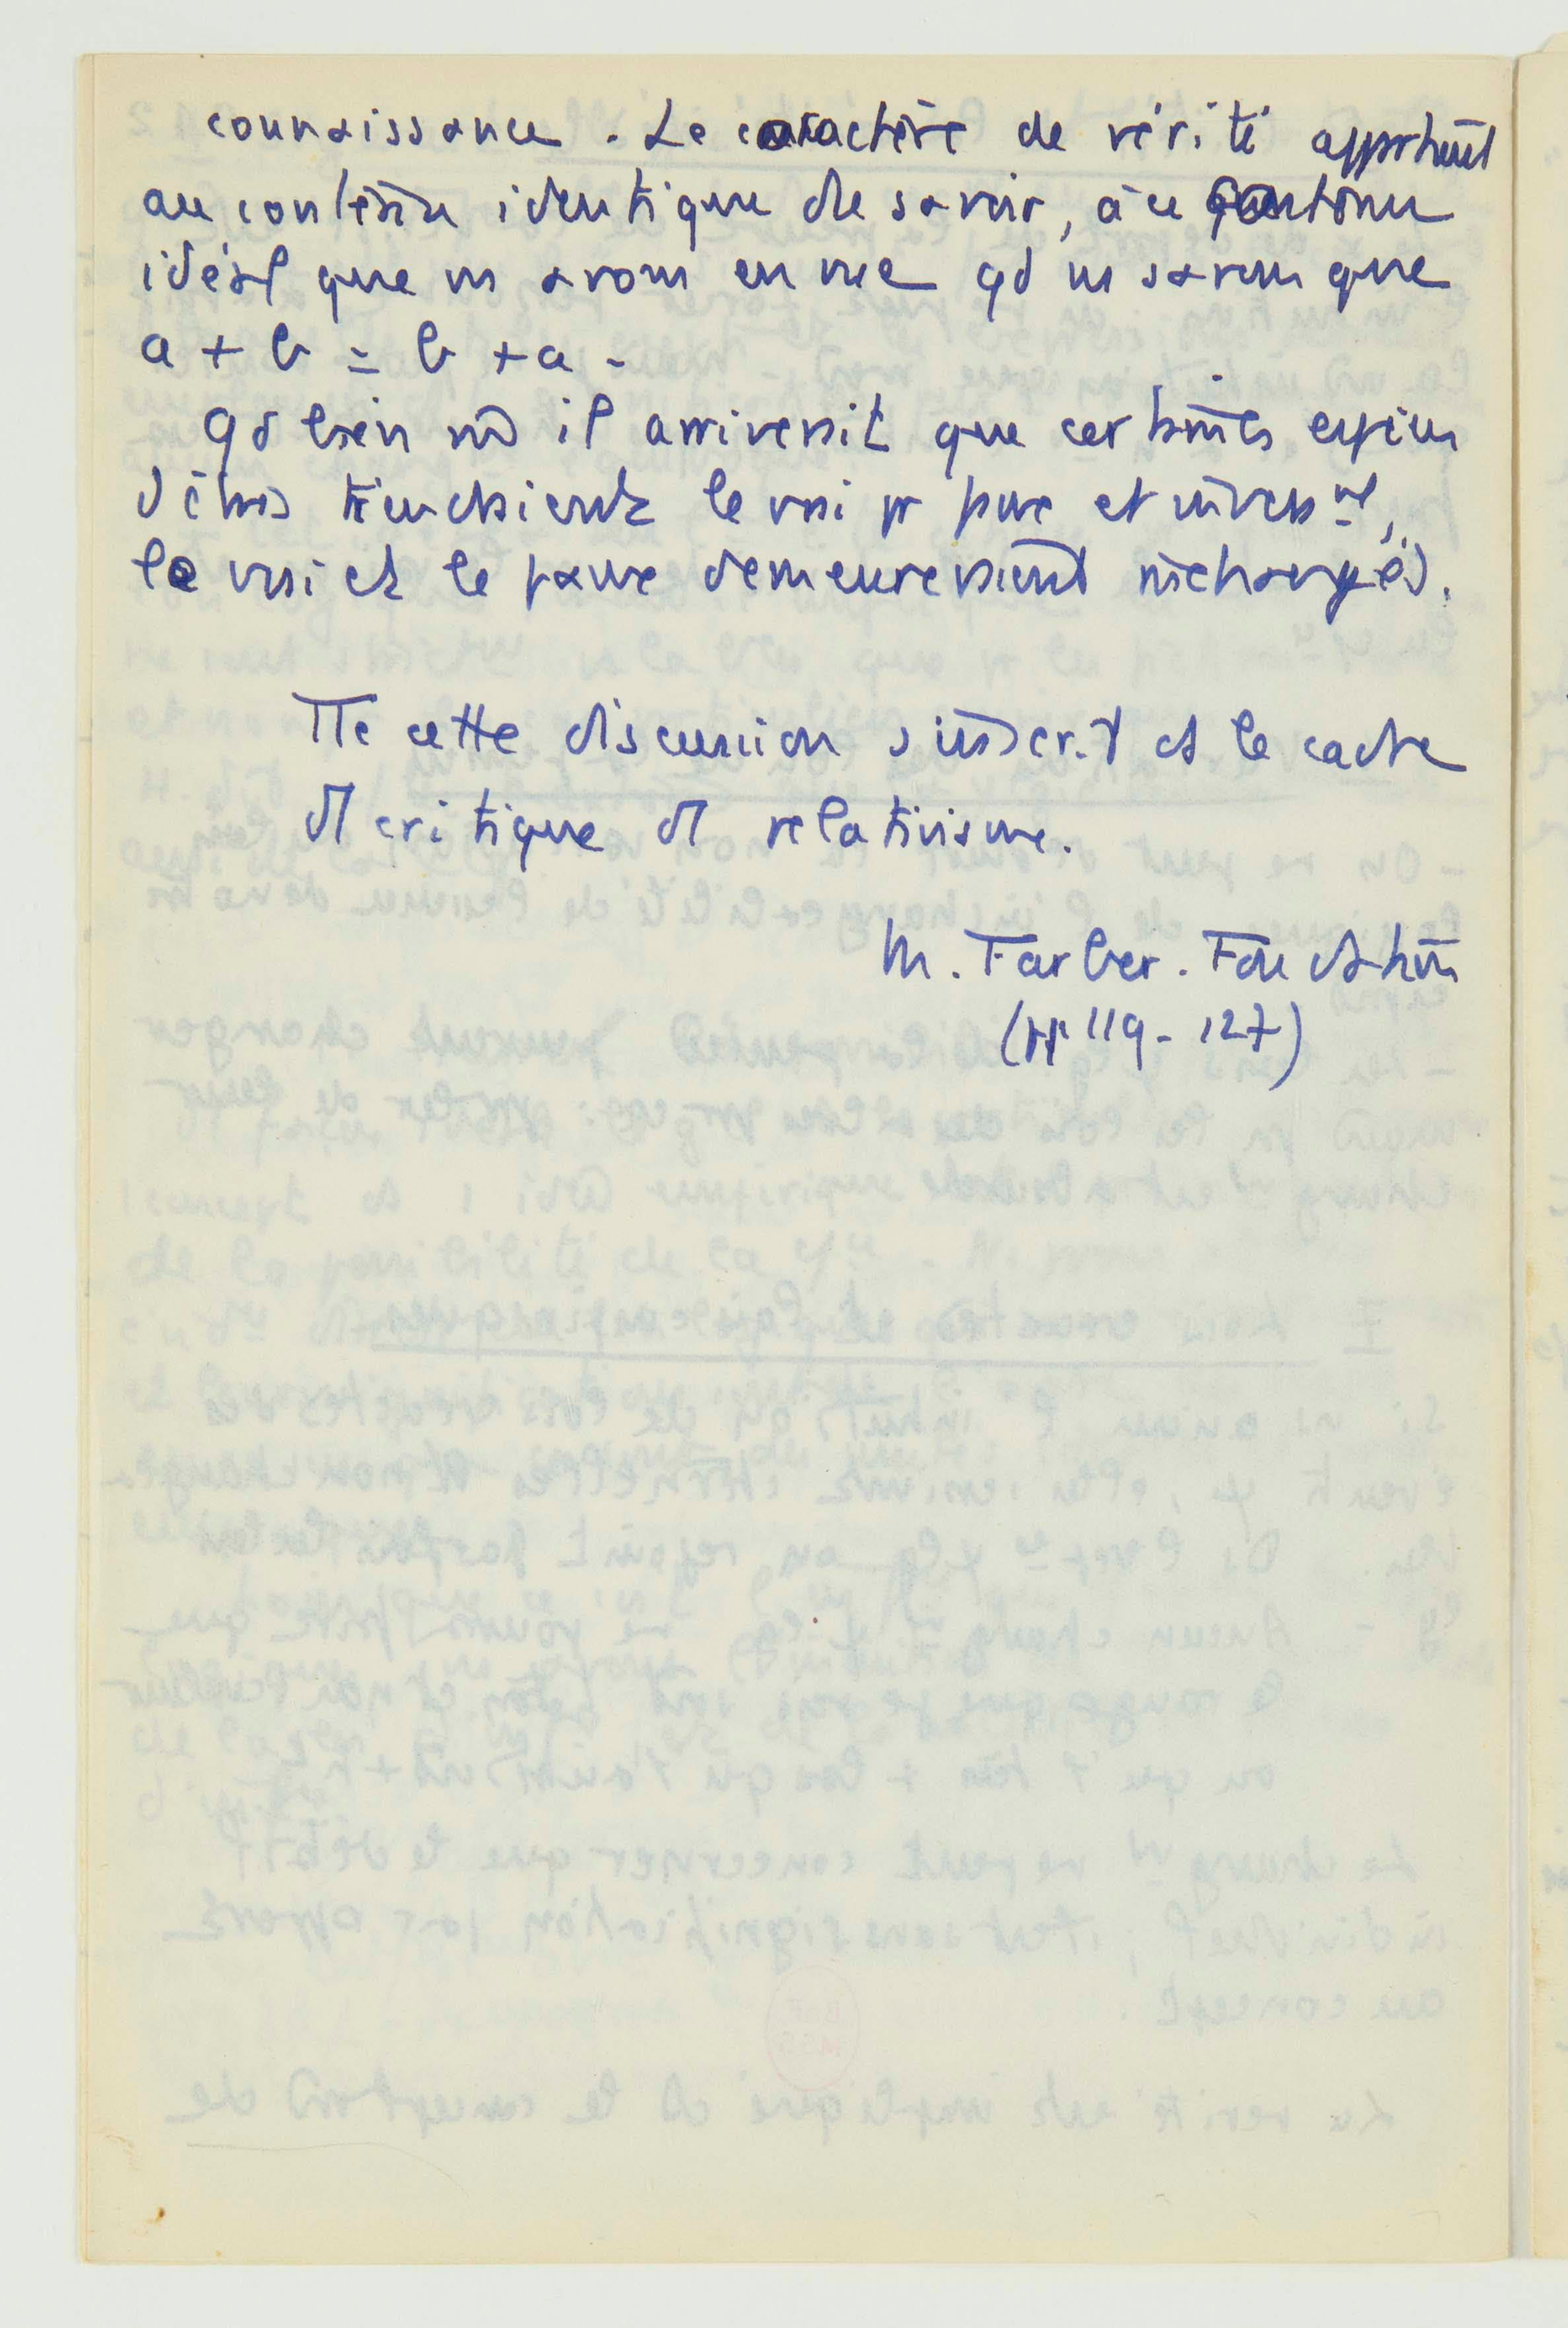 connaissance. Le caractère de vérité appartient
au contenu identique de savoir, à ce contenu
idéal que ns avons en vue qd ns savons que
a + b = b + a.
Qd bien m̂ il arriverait que certaines espèces
d'êtres tiendraient le vrai pr faux et inverst,
le vrai et le faux demeureraient inchangés.
Tte cette discussion s'inscrit ds le cadre
critique relativisme.
M. Farber. Foundation
(pp 119-127)